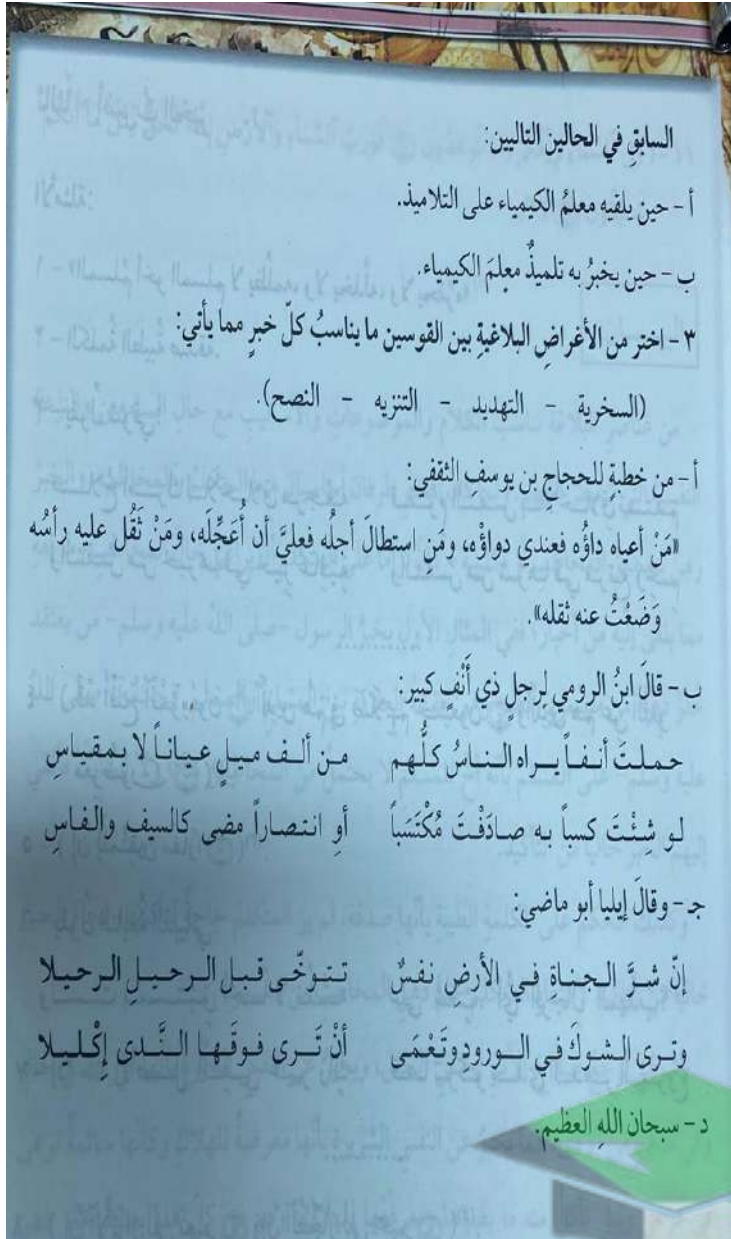 السابقِ في الحالين التاليين:
أ - حين يلقيه معلمُ الكيمياء على التلاميذ.
ب - حين يخبرُ به تلميذٌ معلمَ الكيمياء.
٣ - اختر من الأغراضِ البلاغيةِ بين القوسين ما يناسبُ كلّ خبرٍ مما يأتي:
(السخرية - التهديد - التنزيه - النصح).
أ - من خطبةٍ للحجاجِ بن يوسفِ الثقفي:
«مَنْ أعياه داؤُه فعندي دواؤْه، ومَنِ استطالَ أجلُه فعليَّ أن أُعَجِّلَه، ومَنْ ثَقُل عليه رأسُه
وَضَعْتُ عنه ثقله».
ب - قالَ ابنُ الرومي لِرجلٍ ذي أَنْفٍ كبير:
حملتَ أنفاً يراه الناسُ كلُّهم من ألف ميلٍ عياناً لا بمقياسِ
لو شِئْتَ كسباً به صادَفْتَ مُكْتَسَباً أوِ انتصاراً مضى كالسيف والفاسِ
جـ - وقالَ إيليا أبو ماضي:
إنّ شرَّ الجناةِ في الأرضِ نفسٌ تتوخّى قبل الرحيلِ الرحيلا
وترى الشوكَ في الورودِ وتَعْمَى أنْ تَرى فوقَها النَّدى إكْليلا
د - سبحان اللهِ العظيم.